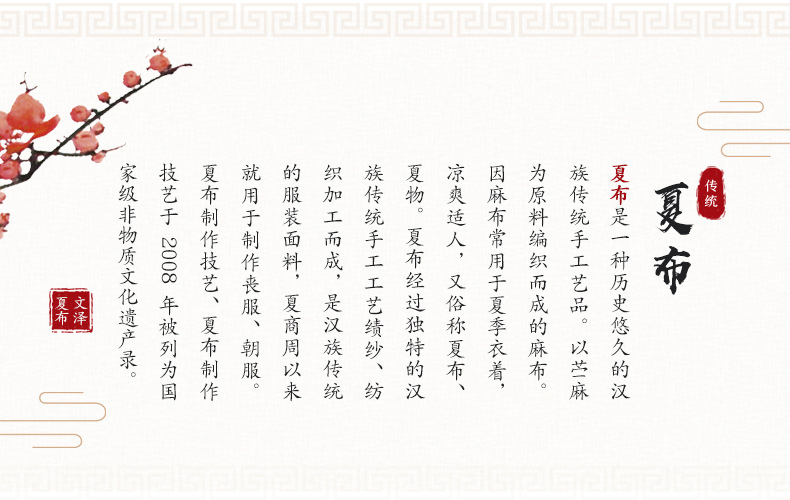 传统
夏布
夏布是一种历史悠久的汉
族传统手工艺品。以苎麻
为原料编织而成的麻布。
因麻布常用于夏季衣着，
凉爽适人，又俗称夏布、
夏物。夏布经过独特的汉
族传统手工工艺绩纱、纺
织加工而成，是汉族传统
的服装面料，夏商周以来
就用于制作丧服、朝服。
夏布制作技艺、夏布制作
技艺于 2008 年被列为国
家级非物质文化遗产录。
文泽
夏布